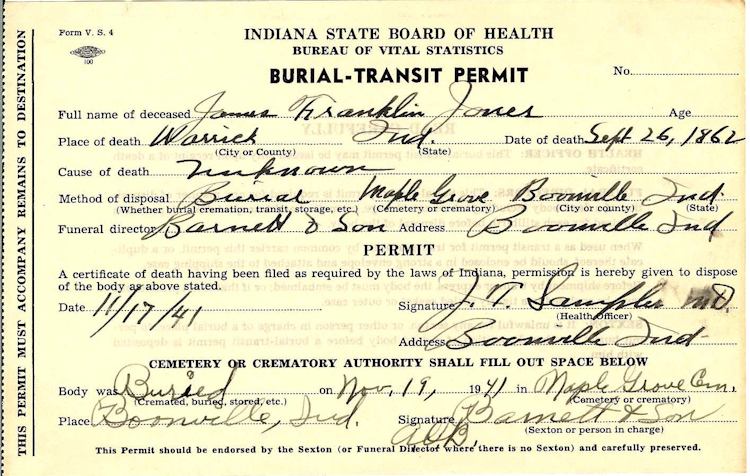 Form V. S. 4
100
INDIANA STATE BOARD OF HEALTH
BUREAU OF VITAL STATISTICS
BURIAL-TRANSIT PERMIT
No.
Full name of deceased James Franklin Jones Age
Place of death Warrick Ind. Date of death Sept 26, 1862
(City or County) (State)
Cause of death unknown
Method of disposal Burial Maple Grove Boonville Ind
(Whether burial cremation, transit, storage, etc.) (Cemetery or crematory) (City or county) (State)
Funeral director Barnett & Son Address Boonville Ind
PERMIT
A certificate of death having been filed as required by the laws of Indiana, permission is hereby given to dispose
of the body as above stated.
Date 11/17/41 Signature J. T. Samples MD.
(Health officer)
Address Boonville Ind
CEMETERY OR CREMATORY AUTHORITY SHALL FILL OUT SPACE BELOW
Body was Buried on Nov. 19, 1941 in Maple Grove Cem.
(Cremated, buried, stored, etc.) (Cemetery or crematory)
Place Boonville, Ind. Signature Barnett & Son
(Sexton or person in charge)
This Permit should be endorsed by the Sexton (or Funeral Director where there is no Sexton) and carefully preserved.
THIS PERMIT MUST ACCOMPANY REMAINS TO DESTINATION